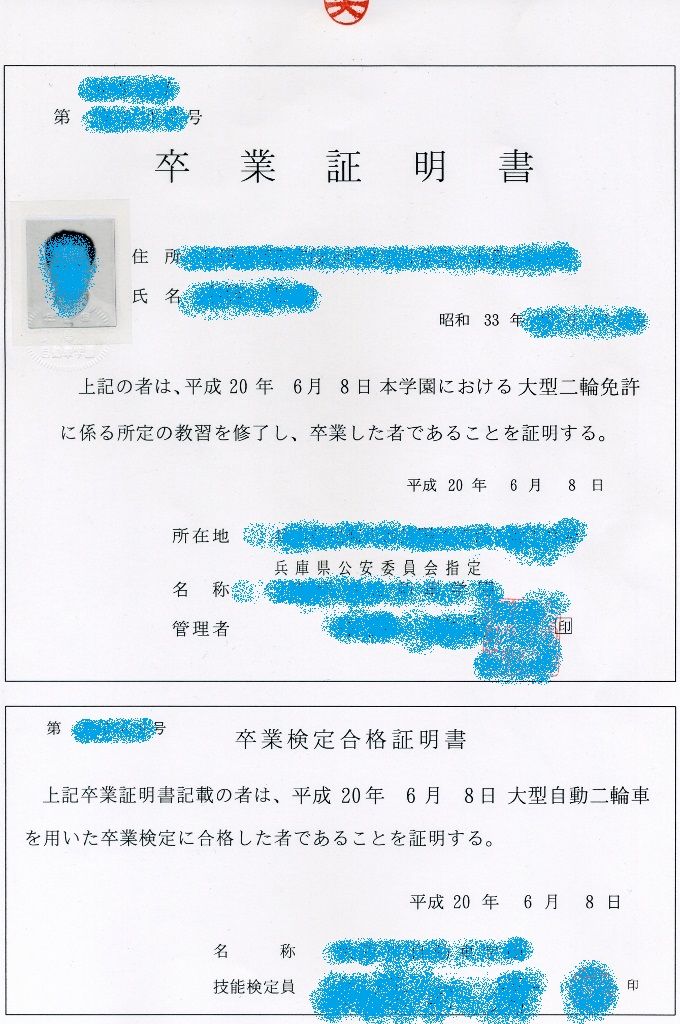 第 号
卒業証明書
住所
氏名
昭和 33 年
上記の者は、平成 20 年 6月 8日 本学園における 大型二輪免許
に係る所定の教習を修了し、卒業した者であることを証明する。
平成 20 年 6 月 8 日
所在地
兵庫県公安委員会指定
名 称
管理者 印
第 号
卒業検定合格証明書
上記卒業証明書記載の者は、平成 20年 6 月 8日 大型自動二輪車
を用いた卒業検定に合格した者であることを証明する。
平成 20 年 6 月 8 日
名 称
技能検定員 印